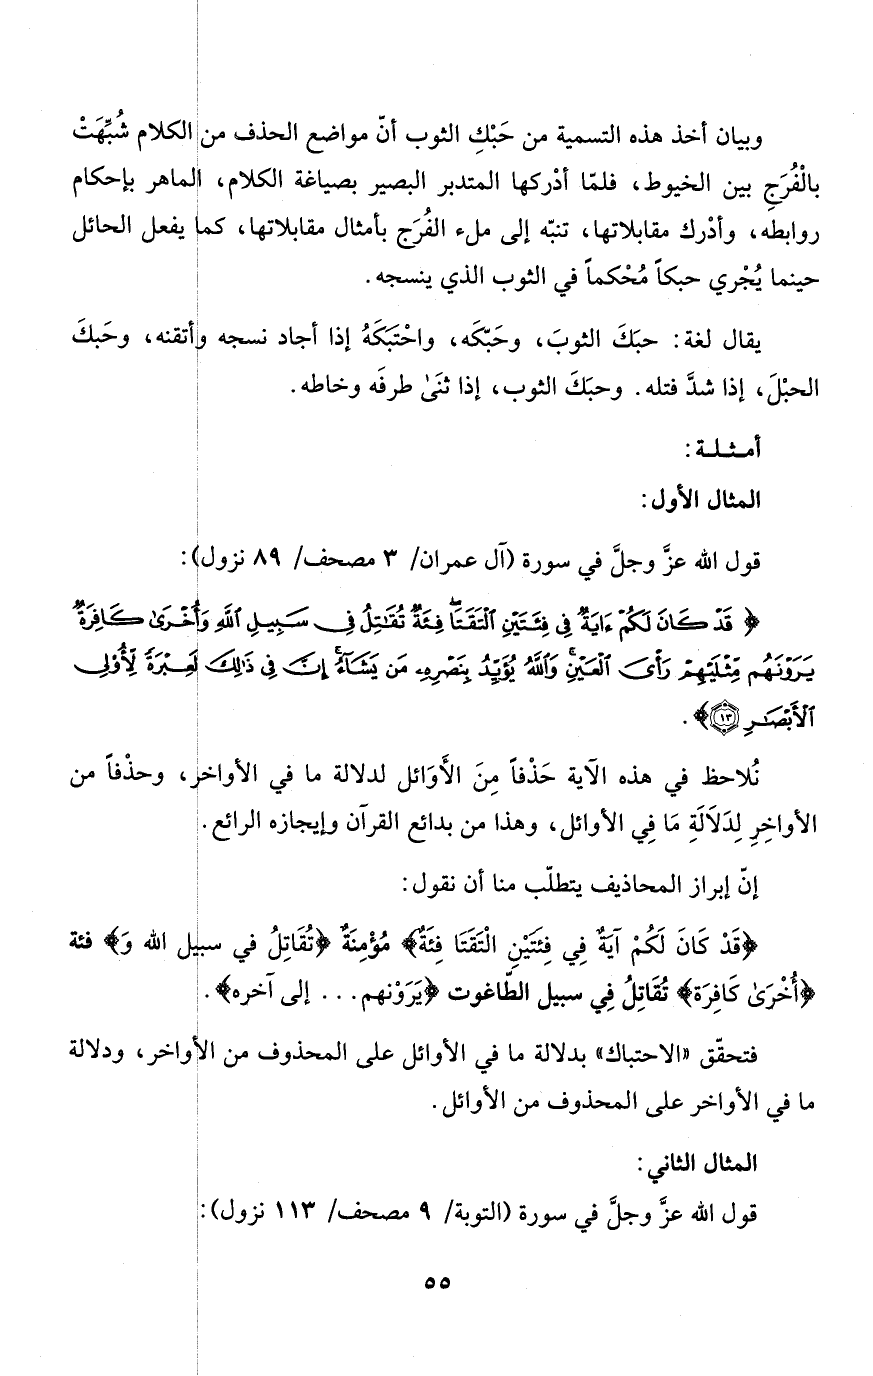 وبيان أخذ هذه التسمية من حَبْكِ الثوب أنّ مواضع الحذف من الكلام شُبِّهَتْ
بالْفُرَجِ بين الخيوط، فلمّا أدْركها المتدبر البصير بصياغة الكلام، الماهر بإحكام
روابطه، وأدْرك مقابلاتها، تنبّه إلى ملء الفُرَج بأمثال مقابلاتها، كما يفعل الحائل
حينما يُجْري حبكاً مُحْكماً في الثوب الذي ينسجه.
يقال لغة: حبَكَ الثوبَ، وحَبّكَه، واحْتَبَكَهُ إذا أجاد نسجه وأتقنه، وحَبكَ
الحبْلَ، إذا شدَّ فتله. وحبَكَ الثوب، إذا ثنَىٰ طرفَه وخاطه.
أمـثـلـة:
المثال الأول:
قول الله عزَّ وجلَّ في سورة (آل عمران/ ٣ مصحف/ ٨٩ نزول):
﴿ قَدْ كَانَ لَكُمْ ءَايَةٌ فِى فِئَتَيْنِ ٱلْتَقَتَا ۖ فِئَةٌ تُقَـٰتِلُ فِى سَبِيلِ ٱللَّهِ وَأُخْرَىٰ كَافِرَةٌ
يَرَوْنَهُم مِّثْلَيْهِمْ رَأْىَ ٱلْعَيْنِ ۚ وَٱللَّهُ يُؤَيِّدُ بِنَصْرِهِۦ مَن يَشَآءُ ۗ إِنَّ فِى ذَٰلِكَ لَعِبْرَةً لِّأُو۟لِى
ٱلْأَبْصَـٰرِ ١٣﴾.
نُلاحظ في هذه الآية حَذْفاً مِنَ الأَوَائل لدلالة ما في الأواخر، وحذْفاً من
الأواخِرِ لِدَلاَلَةِ مَا فِي الأوائل، وهذا من بدائع القرآن وإيجازه الرائع.
إنّ إبراز المحاذيف يتطلّب منا أن نقول:
﴿قَدْ كَانَ لَكُمْ آيَةٌ فِي فِئَتَيْنِ الْتَقَتَا فِئَةٌ﴾ مُؤْمِنَةٌ ﴿تُقَاتِلُ في سبيل الله وَ﴾ فئة
﴿أُخْرَىٰ كَافِرَة﴾ تُقَاتِلُ فِي سبيل الطّاغوت ﴿يَرَوْنهم... إلى آخره﴾.
فتحقّق «الاحتباك» بدلالة ما في الأوائل على المحذوف من الأواخر، ودلالة
ما في الأواخر على المحذوف من الأوائل.
المثال الثاني:
قول الله عزَّ وجلَّ في سورة (التوبة/ ٩ مصحف/ ١١٣ نزول):
٥٥